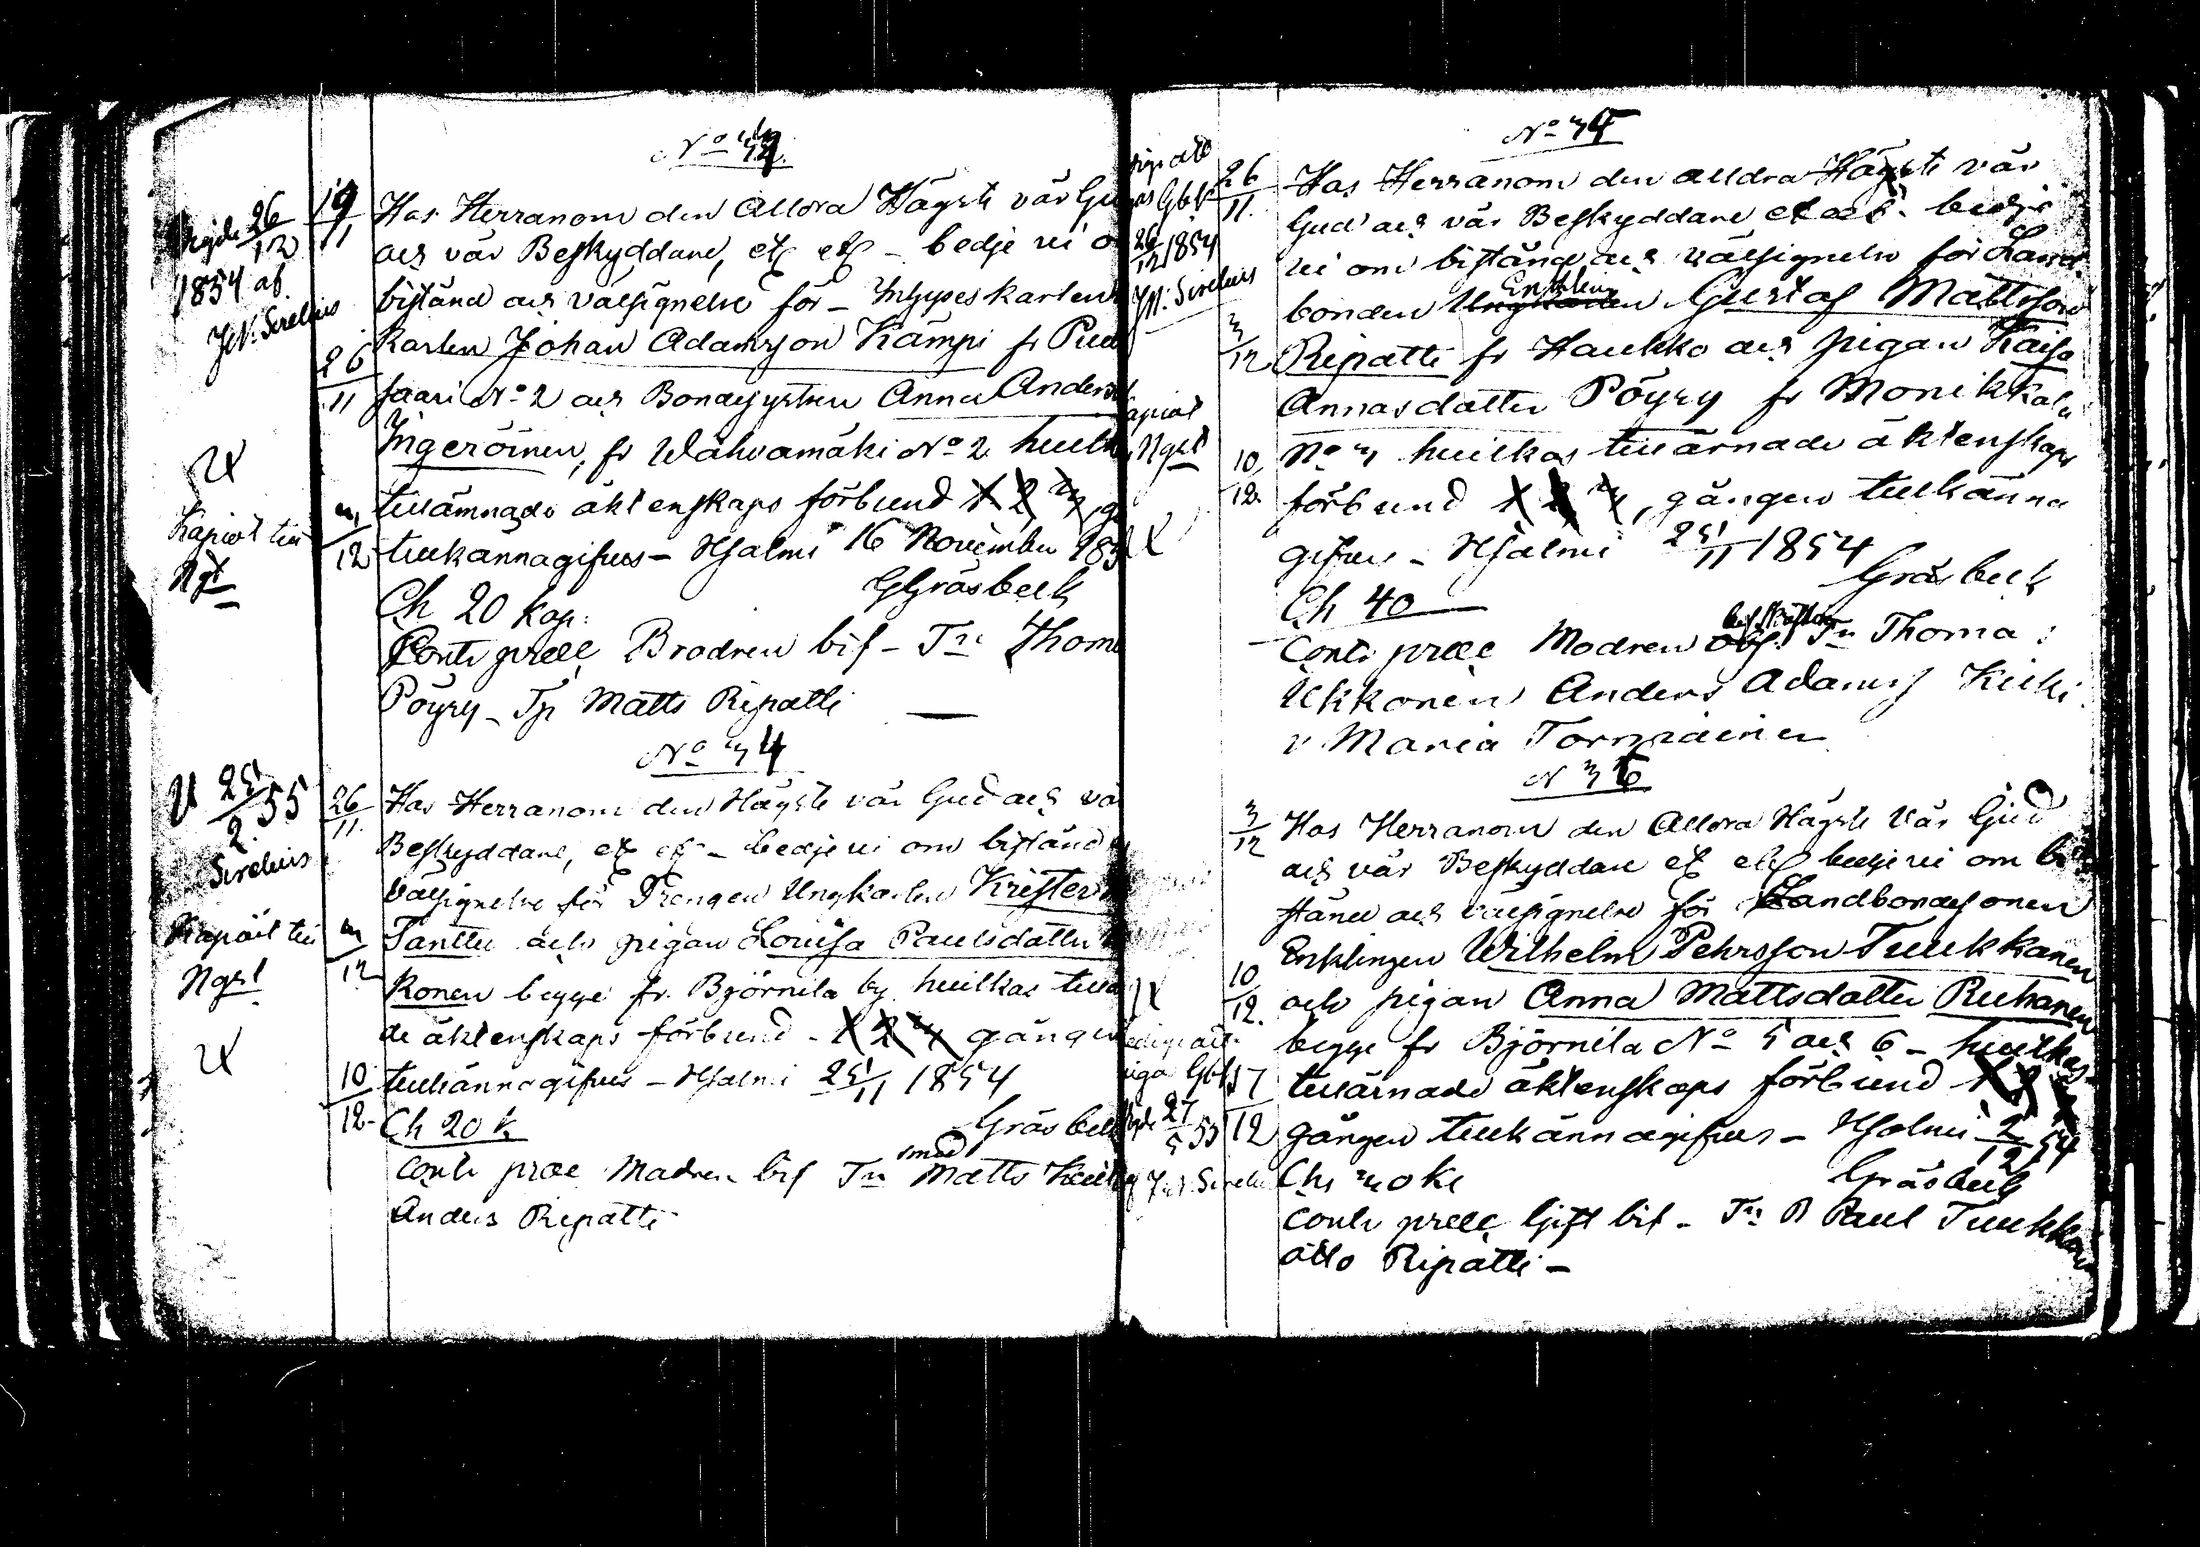 No 33
Vigde 26/12
1854 af
J.N. Sirelius
19/11
26/11
3/12
U
Kapiat till
Ngst
Hos Herranom den Allora Högste vår Gu
och vår Beskyddare, etc etc - bedje vi o
bistånd och välsignelse för - Inhyseskarlen
Karlen Johan Adamsson Kämpi fr Puu
saari No 2 och Bondesystren Anna Anders
Ingeröinen, fr Wahvamäki No 2 hvilk
tillämnade äktenskaps förbund 1 2 3 gå
tillkännagifves - Hjalmi 16 November 185
GGräsbeck
Ch 20 kop:
Contr præs Brodren bif - Tn: Thom
Pöyry - Tn Matts Ripatti
No 34
U 25/2 55
Sirelius
26/11
3/12
10/12
Kapiat till
Ngst
U
Hos Herranom den Högste vår Gud och vå
Beskyddare, etc etc - bedje vi om bistånd
välsignelse för Drengen Ungkarlen Krister
Tanttu och pigan Lovisa Paulsdotter
konen begge fr. Björnila by hvilkas tillä
de äktenskaps förbund - 1 2 3 gången
tillkännagifves - Hjalmi 25/11 1854
Gräsbeck
Ch 20 k
Contr præs Modren bif Tn smed Matts Kuik
Anders Ripatti
No 35
26/12 1854
J.N. Sirelius
26/11
3/12
10/12
Kapiat
Ngst
U
Hos Herranom den alldra Högste vår
Gud och vår Beskyddare etc etc. bedje
vi om bistånd och välsignelse för Land
bonden Ungkarlen Enkling Gustaf Mattsson
Ripatti fr Haukko och pigan Kaisa
Annasdotter Pöyry fr Monikkala
No 3 hvilkas tillärnade äktenskaps
förbund 1 2 3, gången tillkänna
gifves - Hjalmi 25/11 1854
Gräsbeck
Ch 40
Contr præs Modren bif. Tn Thoma:
Ukkonen Anders Adamsf Kuiki
v Maria Tormäinen
N 36
3/12
10/12
17/12
U
27/5 55
J.N. Sirelius
Hos Herranom den Allora Högste Vår Gud
och vår Beskyddare etc etc bedje vi om bi
stånd och välsignelse för Landbondesonen
Enklingen Wilhelm Pehrsson Tuukkanen
och pigan Anna Mattsdotter Ruhanen
begge fr Björnila No 5 och 6 - hvilkas
tillärnade äktenskaps förbund 1 2 3
gången tillkännagifves - Hjalmi 2/12 54
Gräsbeck
Chs 30 k
Contr præs Gift bif - Tn: B Paul Tuukkan
Otto Ripatti -